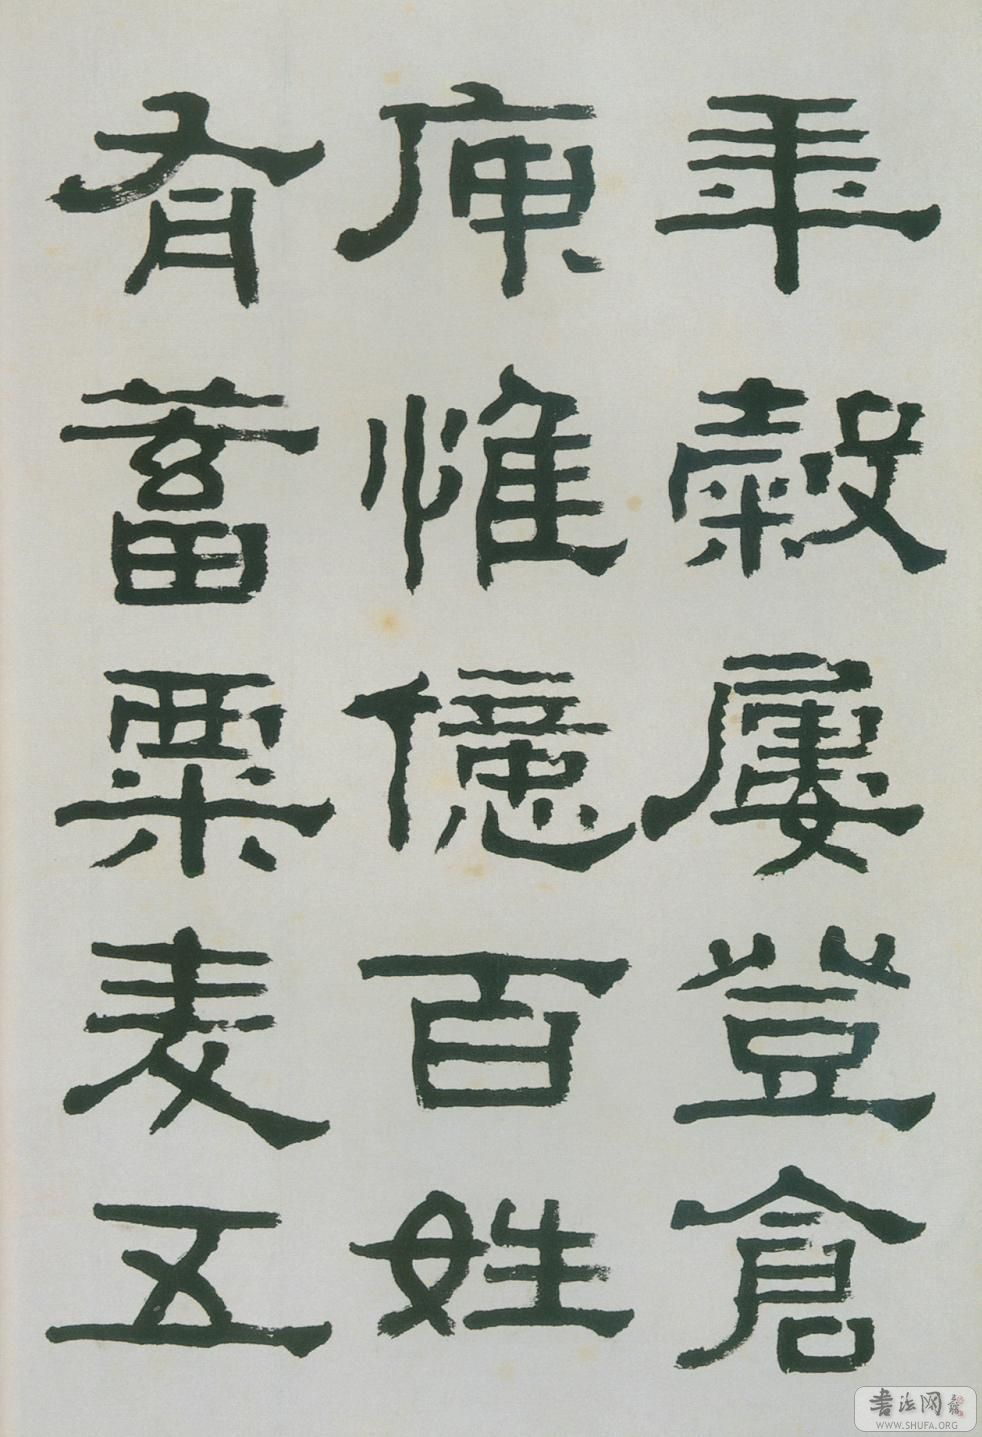 年穀屢登倉
庾惟億百姓
有蓄粟麦五
書法网
WWW.SHUFA.ORG